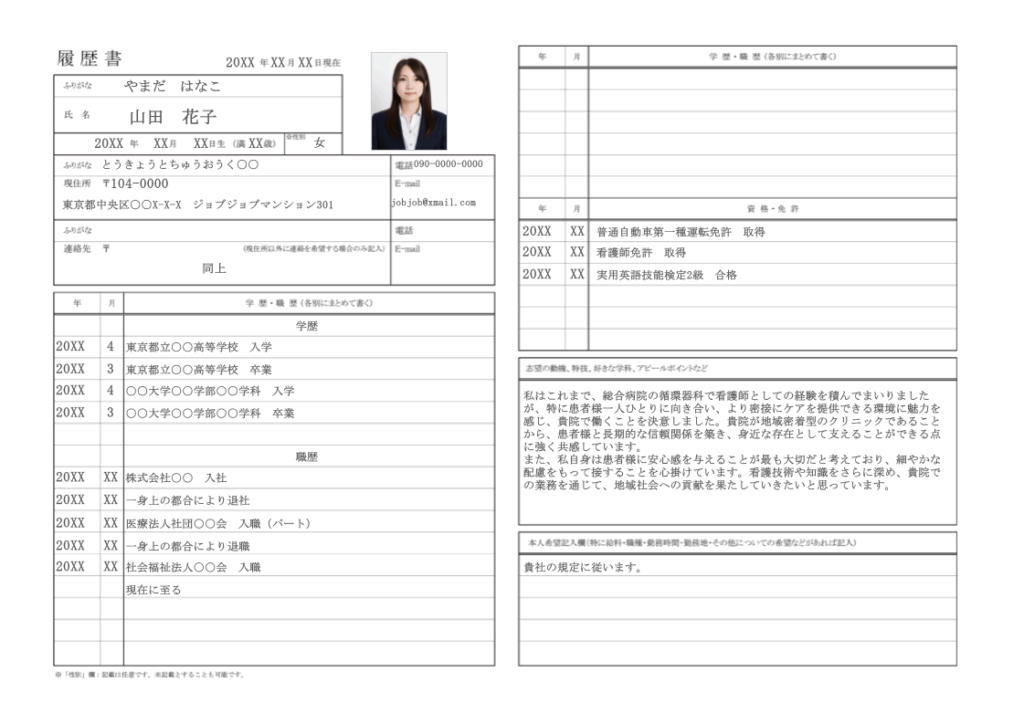 履歴書
20XX 年 XX月 XX日現在
ふりがな やまだ はなこ
氏 名 山田 花子
20XX 年 XX月 XX日生 (満 XX歳) ※性別 女
ふりがな とうきょうとちゅうおうく〇〇
電話090-0000-0000
現住所 〒104-0000
E-mail
東京都中央区〇〇X-X-X ジョブジョブマンション301
jobjob@xmail.com
ふりがな
電話
連絡先 〒 (現住所以外に連絡を希望する場合のみ記入)
E-mail
同上
年 月 学 歴・職 歴 (各別にまとめて書く)
学歴
20XX 4 東京都立〇〇高等学校 入学
20XX 3 東京都立〇〇高等学校 卒業
20XX 4 〇〇大学〇〇学部〇〇学科 入学
20XX 3 〇〇大学〇〇学部〇〇学科 卒業
職歴
20XX XX 株式会社〇〇 入社
20XX XX 一身上の都合により退社
20XX XX 医療法人社団〇〇会 入職（パート）
20XX XX 一身上の都合により退職
20XX XX 社会福祉法人〇〇会 入職
現在に至る
※「性別」欄：記載は任意です。未記載とすることも可能です。
年 月 学 歴・職 歴 (各別にまとめて書く)
年 月 資 格・免 許
20XX XX 普通自動車第一種運転免許 取得
20XX XX 看護師免許 取得
20XX XX 実用英語技能検定2級 合格
志望の動機、特技、好きな学科、アピールポイントなど
私はこれまで、総合病院の循環器科で看護師としての経験を積んでまいりました
が、特に患者様一人ひとりに向き合い、より密接にケアを提供できる環境に魅力を
感じ、貴院で働くことを決意しました。貴院が地域密着型のクリニックであること
から、患者様と長期的な信頼関係を築き、身近な存在として支えることができる点
に強く共感しています。
また、私自身は患者様に安心感を与えることが最も大切だと考えており、細やかな
配慮をもって接することを心掛けています。看護技術や知識をさらに深め、貴院で
の業務を通じて、地域社会への貢献を果たしていきたいと思っています。
本人希望記入欄(特に給料・職種・勤務時間・勤務地・その他についての希望などがあれば記入)
貴社の規定に従います。